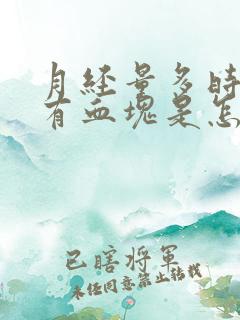 月经量多时
有血块是怎
已瞎将军
未经同意禁止转载